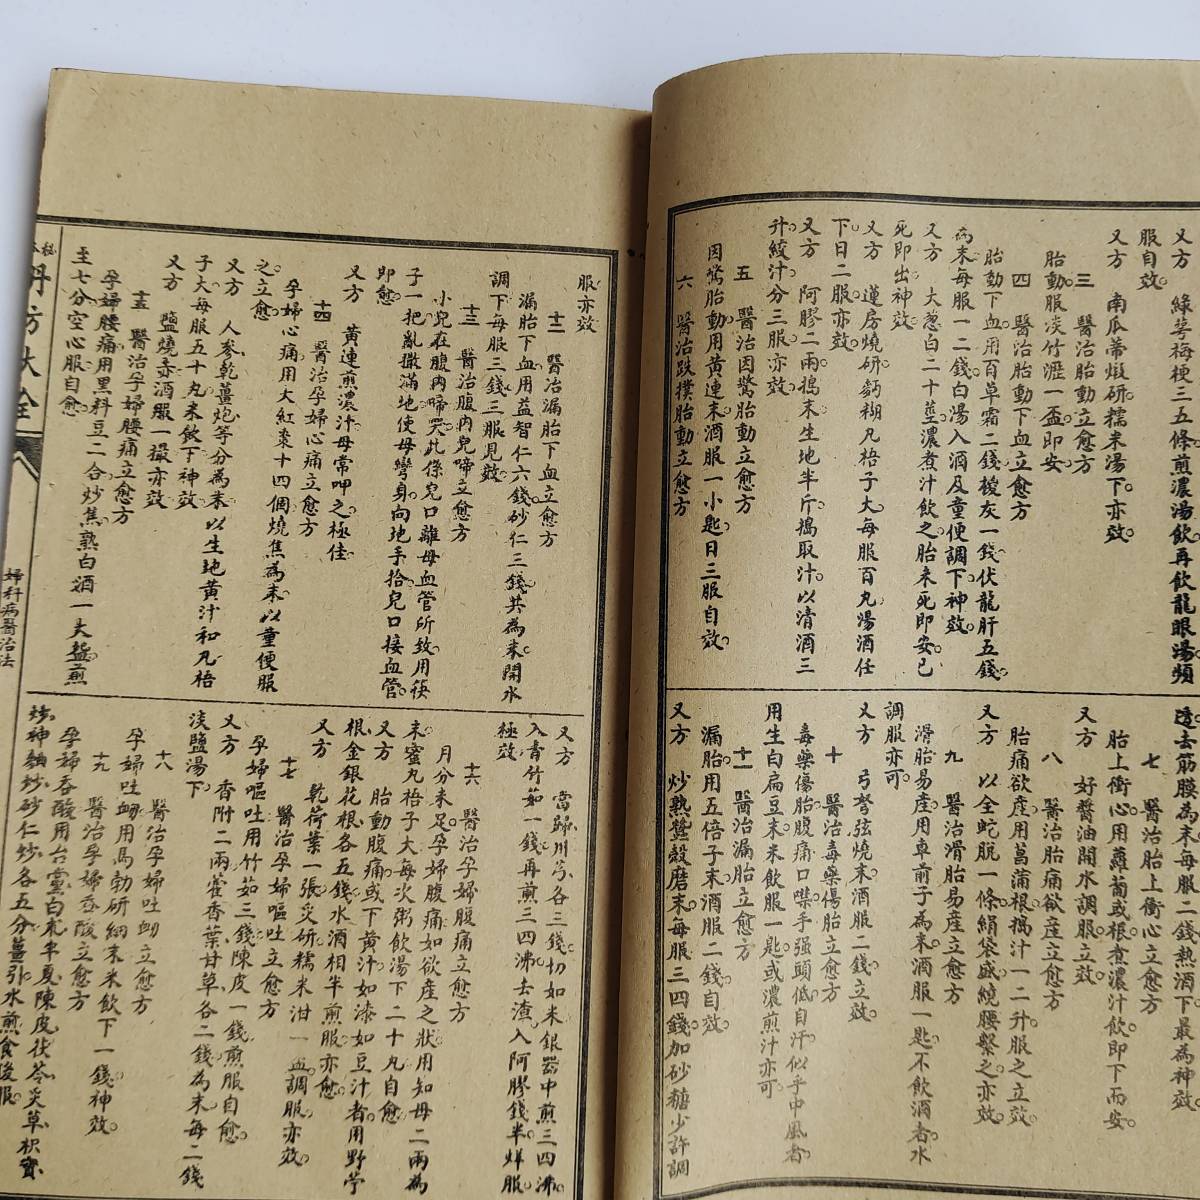 又方　綠萼梅梗三五條煎濃湯飲再飲龍眼湯頻
服自效
又方　南瓜蒂煅研糯米湯下亦效
三　醫治胎動立愈方
胎動服淡竹瀝一盃即安
四　醫治胎動下血立愈方
胎動下血用百草霜二錢椶灰一錢伏龍肝五錢
為末每服一二錢白湯入酒及童便調下神效
又方　大葱白二十莖濃煮汁飲之胎未死即安已
死即出神效
又方　蓮房燒研麪糊丸梧子大每服百丸湯酒任
下日二服亦效
又方　阿膠二兩搗末生地半斤搗取汁以清酒三
升絞汁分三服亦效
五　醫治因驚胎動立愈方
因驚胎動用黄連末酒服一小匙日三服自效
六　醫治跌撲胎動立愈方
透去筋膜為末每服二錢熱酒下最為神效
七　醫治胎上衝心立愈方
胎上衝心用蘿蔔或根煮濃汁飲即下而安
又方　好醬油開水調服立效
八　醫治胎痛欲産立愈方
胎痛欲産用菖蒲根搗汁一二升服之立效
又方　以全蛇脱一條絹袋盛繞腰繫之亦效
九　醫治滑胎易産立愈方
滑胎易産用車前子為末酒服一匙不飲酒者水
調服亦可
又方　弓弩弦燒末酒服二錢立效
十　醫治毒藥傷胎立愈方
毒藥傷胎腹痛口噤手强頭低自汗似乎中風者
用生白扁豆末米飲服一匙或濃煎汁亦可
十一　醫治漏胎立愈方
漏胎用五倍子末酒服二錢自效
又方　炒熟鼈殼磨末每服三四錢加砂糖少許調
服亦效
十二　醫治漏胎下血立愈方
漏胎下血用益智仁六錢砂仁三錢共為末開水
調下每服三錢三服見效
十三　醫治腹內兒啼立愈方
小兒在腹內啼哭此係兒口離母血管所致用筷
子一把亂撒滿地使母彎身向地手拾兒口接血管
即愈
又方　黄連煎濃汁母常呷之極佳
十四　醫治孕婦心痛立愈方
孕婦心痛用大紅棗十四個燒焦為末以童便服
之立愈
又方　人參乾薑炮等分為末以生地黄汁和丸梧
子大每服五十丸米飲下神效
又方　鹽燒赤酒服一撮亦效
十五　醫治孕婦腰痛立愈方
孕婦腰痛用黑料豆二合炒焦熟白酒一大盌煎
至七分空心服自愈
又方　當歸川芎各三錢切如米銀器中煎三四沸
入青竹茹一錢再煎三四沸去渣入阿膠錢半烊服
極效
十六　醫治孕婦腹痛立愈方
月分未足孕婦腹痛如欲産之狀用知母二兩為
末蜜丸梧子大每次粥飲湯下二十丸自愈
又方　胎動腹痛或下黄汁如漆如豆汁者用野苧
根金銀花根各五錢水酒相半煎服亦愈
又方　乾荷葉一張炙研糯米泔一盃調服亦效
十七　醫治孕婦嘔吐立愈方
孕婦嘔吐用竹茹三錢陳皮一錢煎服自愈
又方　香附二兩藿香葉甘草各二錢為末每二錢
淡鹽湯下
十八　醫治孕婦吐衂立愈方
孕婦吐衂用馬勃研細末米飲下一錢神效
十九　醫治孕婦吞酸立愈方
孕婦吞酸用台黨白朮半夏陳皮茯苓炙草枳實
炒神麯炒砂仁炒各五分薑引水煎食後服
秘本
丹方大全
婦科病醫治法